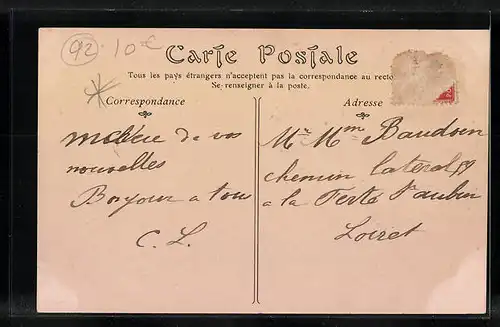 92 10€
Carte Postale
Tous les pays étrangers n'acceptent pas la correspondance au recto
Se renseigner à la poste.
Correspondance
Adresse
de vos
nouvelles
Bonjour a tous
C. L.
Mr Mme Baudoin
chemin lateral
a la Ferté St aubin
Loiret